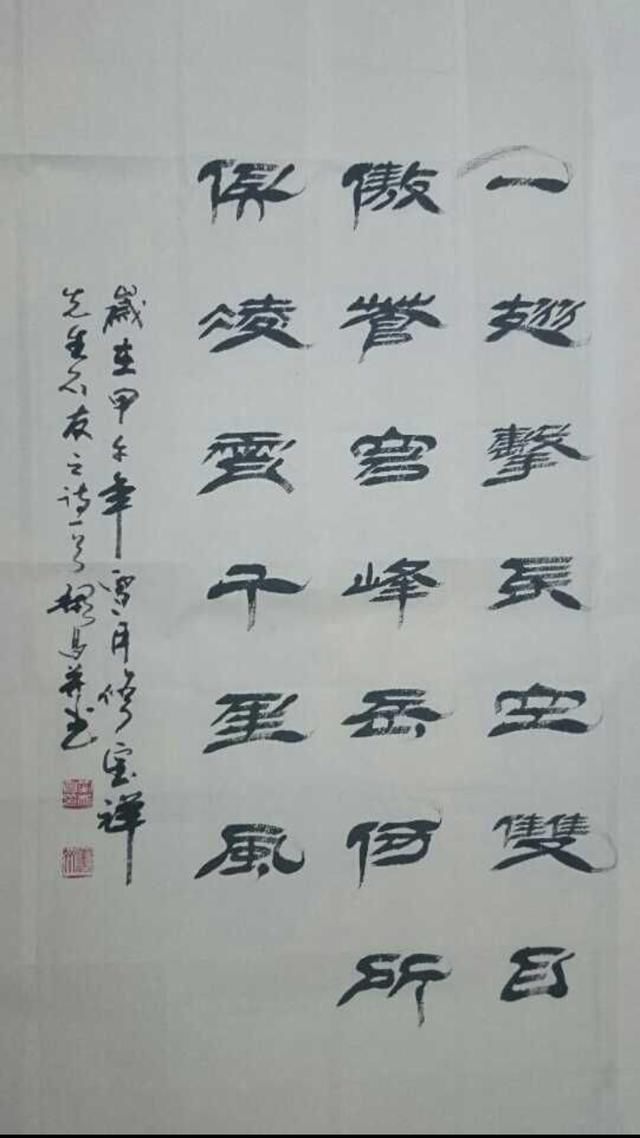 一翅擊長空雙目
傲蒼穹峰岳何所
似凌雲千里風
歲在甲午年雪月修宝祥
先生不友之诗一首